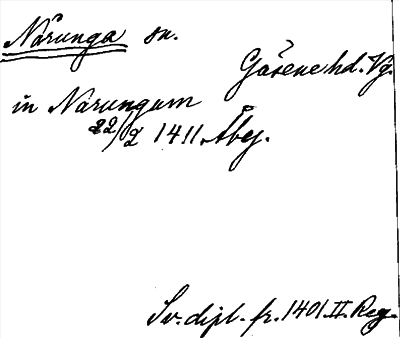 Nårunga sn.
Gäsene hd. Vg.
in Narungum
22/2 1411. Åbg.
Sv. dipl. fr. 1401 II. Reg.